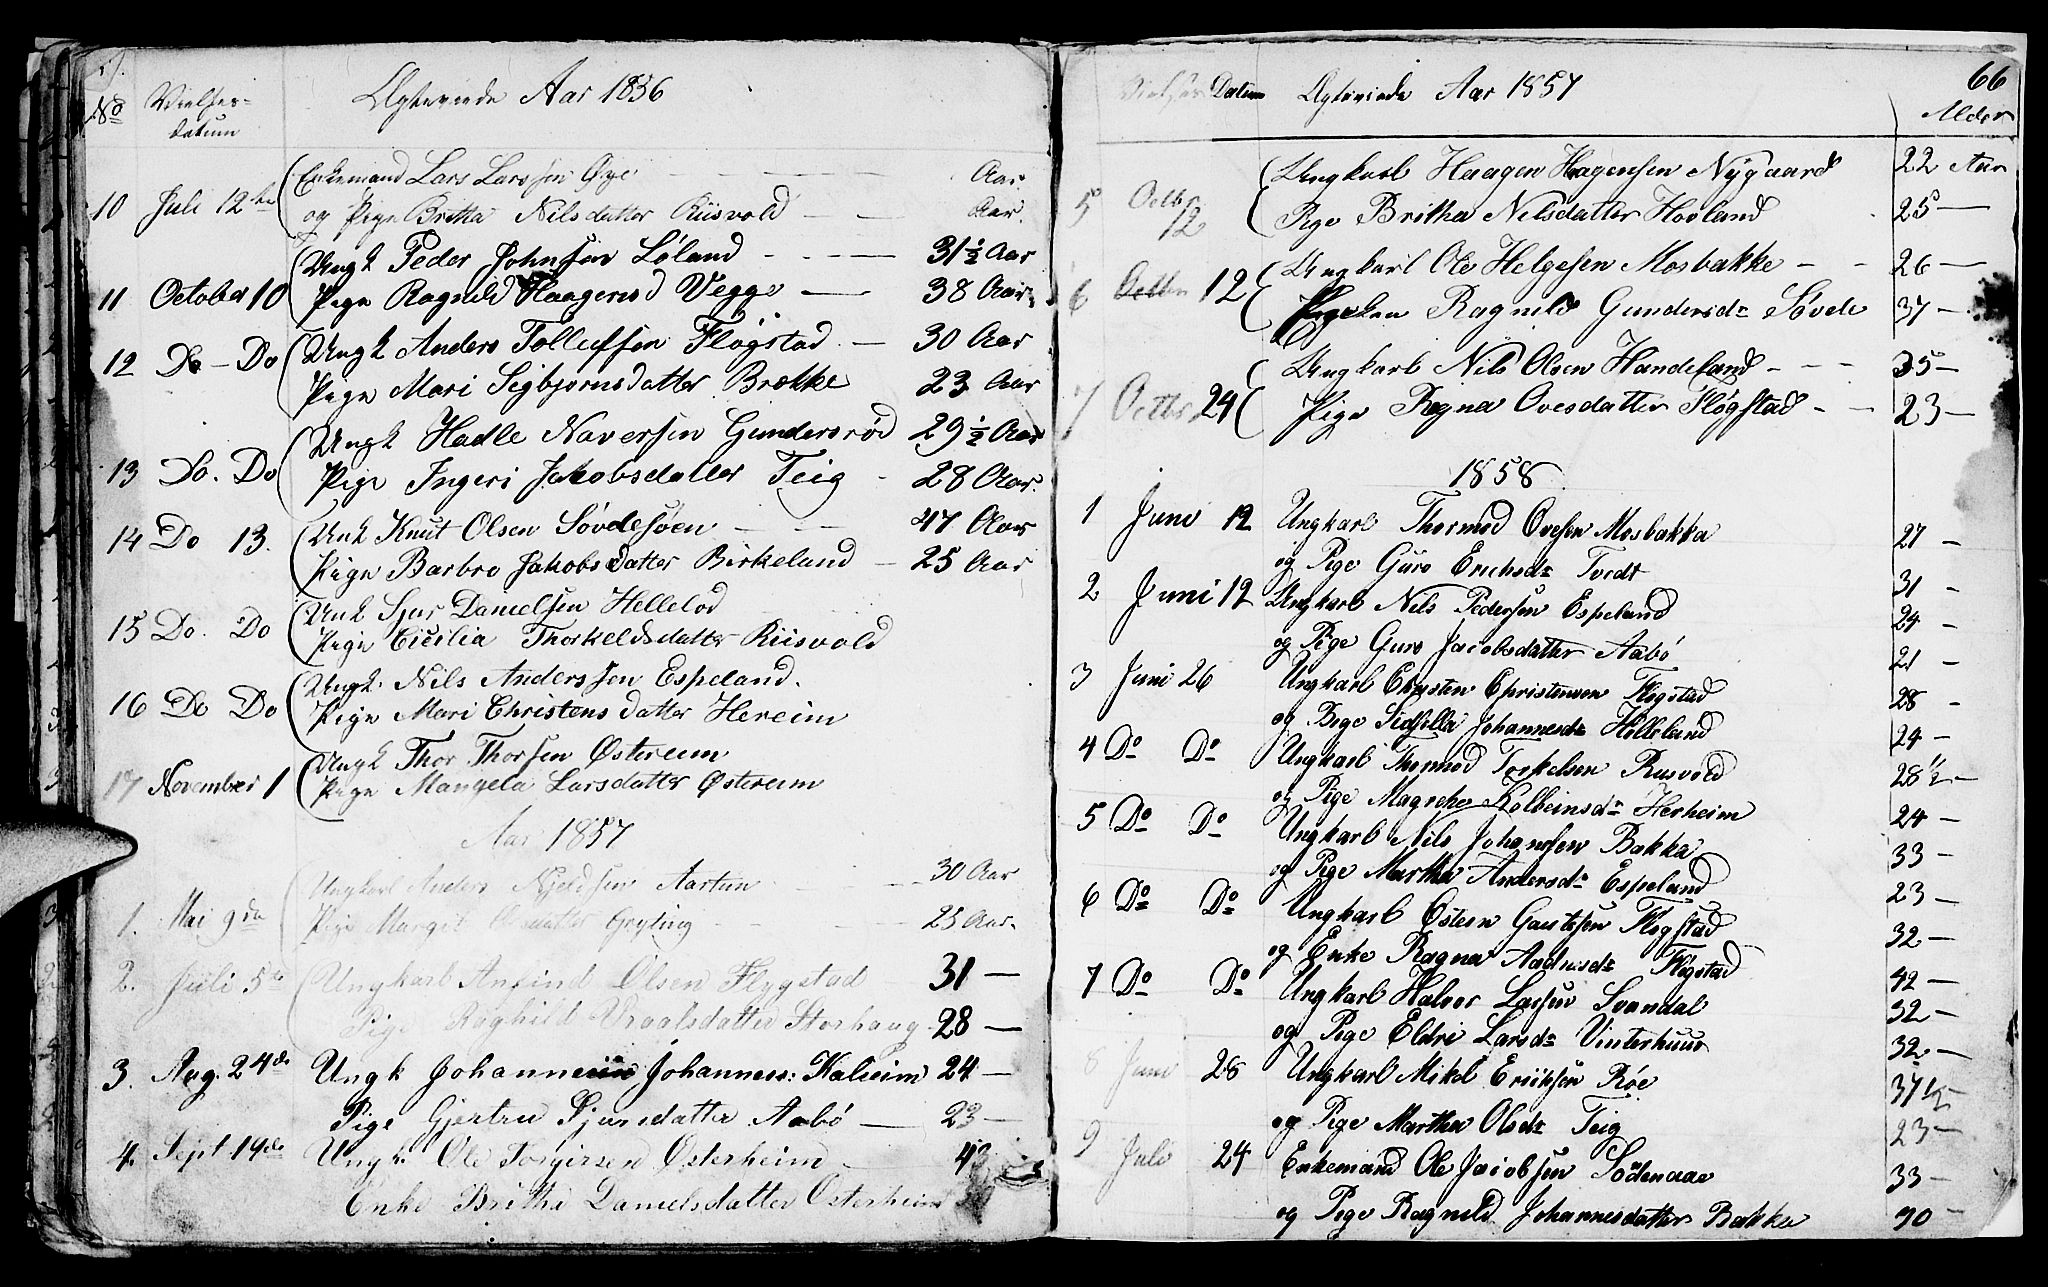 No Vielses- datum Ægteviede Aar 1856
10 Juli 12te Enkemand Lars Larssøn Øye Aar
og Pige Britha Nilsdatter Riisvold Aar.
Ungk Peder Johnssøn Løland 31½ Aar
11 October 10 Pige Ragnild Haagensd Vegge 38 Aar
Ungk Anders Tollufsen Fløgstad 30 Aar
12 Do - Do Pige Mari Sigbjornsdatter Brække 23 Aar
Ungk Hadle Naversen Gundersrød 29½ Aar
13 Do. Do Pige Ingeri Jakobsdatter Teig 28 Aar.
14 Do 13. Unk Knut Olsen Søvdesøen 47 Aar
Pige Barbro Jakobsdatter Birkeland 25 Aar
15 Do. Do Unk Sjur Danielsen Hellelod
Pige Cicilia Thorkeldsdatter Riisvold
Ungk. Nils Anderssen Espeland.
16 Do Do Pige Mari Christensdatter Hereim
Ungk Thor Thorsen Østereim
17 November 1 Pige Mangela Larsdatter Østereim
Aar 1857
Ungkarl Anders Njeldsen Aartun 30 Aar
1. Mai 9da Pige Margit Gryting 25 Aar.
2. Juli 5te Ungkarl Amund Olsen Flygstad 31 —
Pige Raghild Storhaug 28 —
3. Aug. 24de Ungk Johannes: Kaleim 24 —
Pige Gjertru Sjursdatter Aabø — 23 —
4. Sept 14de Ungk. Ole Torgirsen Østerheim
Enke Britha Danielsdatter Østerheim
66
Vielses Datum Ægteviede Aar 1857 Alder
Ungkarl Haagen Hagensen Nygaard 22 Aar
5 Octbr 12 Pige Britha Nilsdatter Hovland 25 —
6 Octbr 12 Ungkarl Ole Helgesen Mosbakke 26 —
Ragnild Gundersdr Søvde 37 —
Ungkarl Nils Olsen Handeland 35 —
7 Octbr 24 Pige Ragna Ovesdatter Fløgstad 23 —
1858
1 Juni 12 Ungkarl Thormod Ovesen Mosbakka 27 —
og Pige Guro Erichsdr Tvedt 31 —
2 Juni 12 Ungkarl Nils Pedersen Espeland 24 —
og Pige Guro Jacobsdatter Aabø 21 —
3 Juni 26 Ungkarl Chrysten Christensen Fløgstad 28 —
og Pige Sidsella Johannesdr Helleland 24 —
4 Do Do Ungkarl Thormod Torkelsen Rusvold 28½ —
og Pige Magrethe Kolbeinsdr Herheim 24 —
5 Do Do Ungkarl Nils Johansen Bakka 33 —
og Pige Martha Andersdr Espeland 23 —
6 Do Do Ungkarl Østein Gautesen Fløgstad 32 —
og Enke Ragna Aadnesdr Fløgstad 42 —
7 Do Do Ungkarl Halvor Larsen Svandal 32 —
og Pige Eldri Larsdr Vinterhuus 32 —
8 Juni 28 Ungkarl Mikel Eriksen Røe 37½
og Pige Martha Olsdr Teig 23 —
9 Juli 24 Enkemand Ole Jacobsen Sødenaae 33 —
og Pige Ragnild Johannesdatter Bakka 30 —